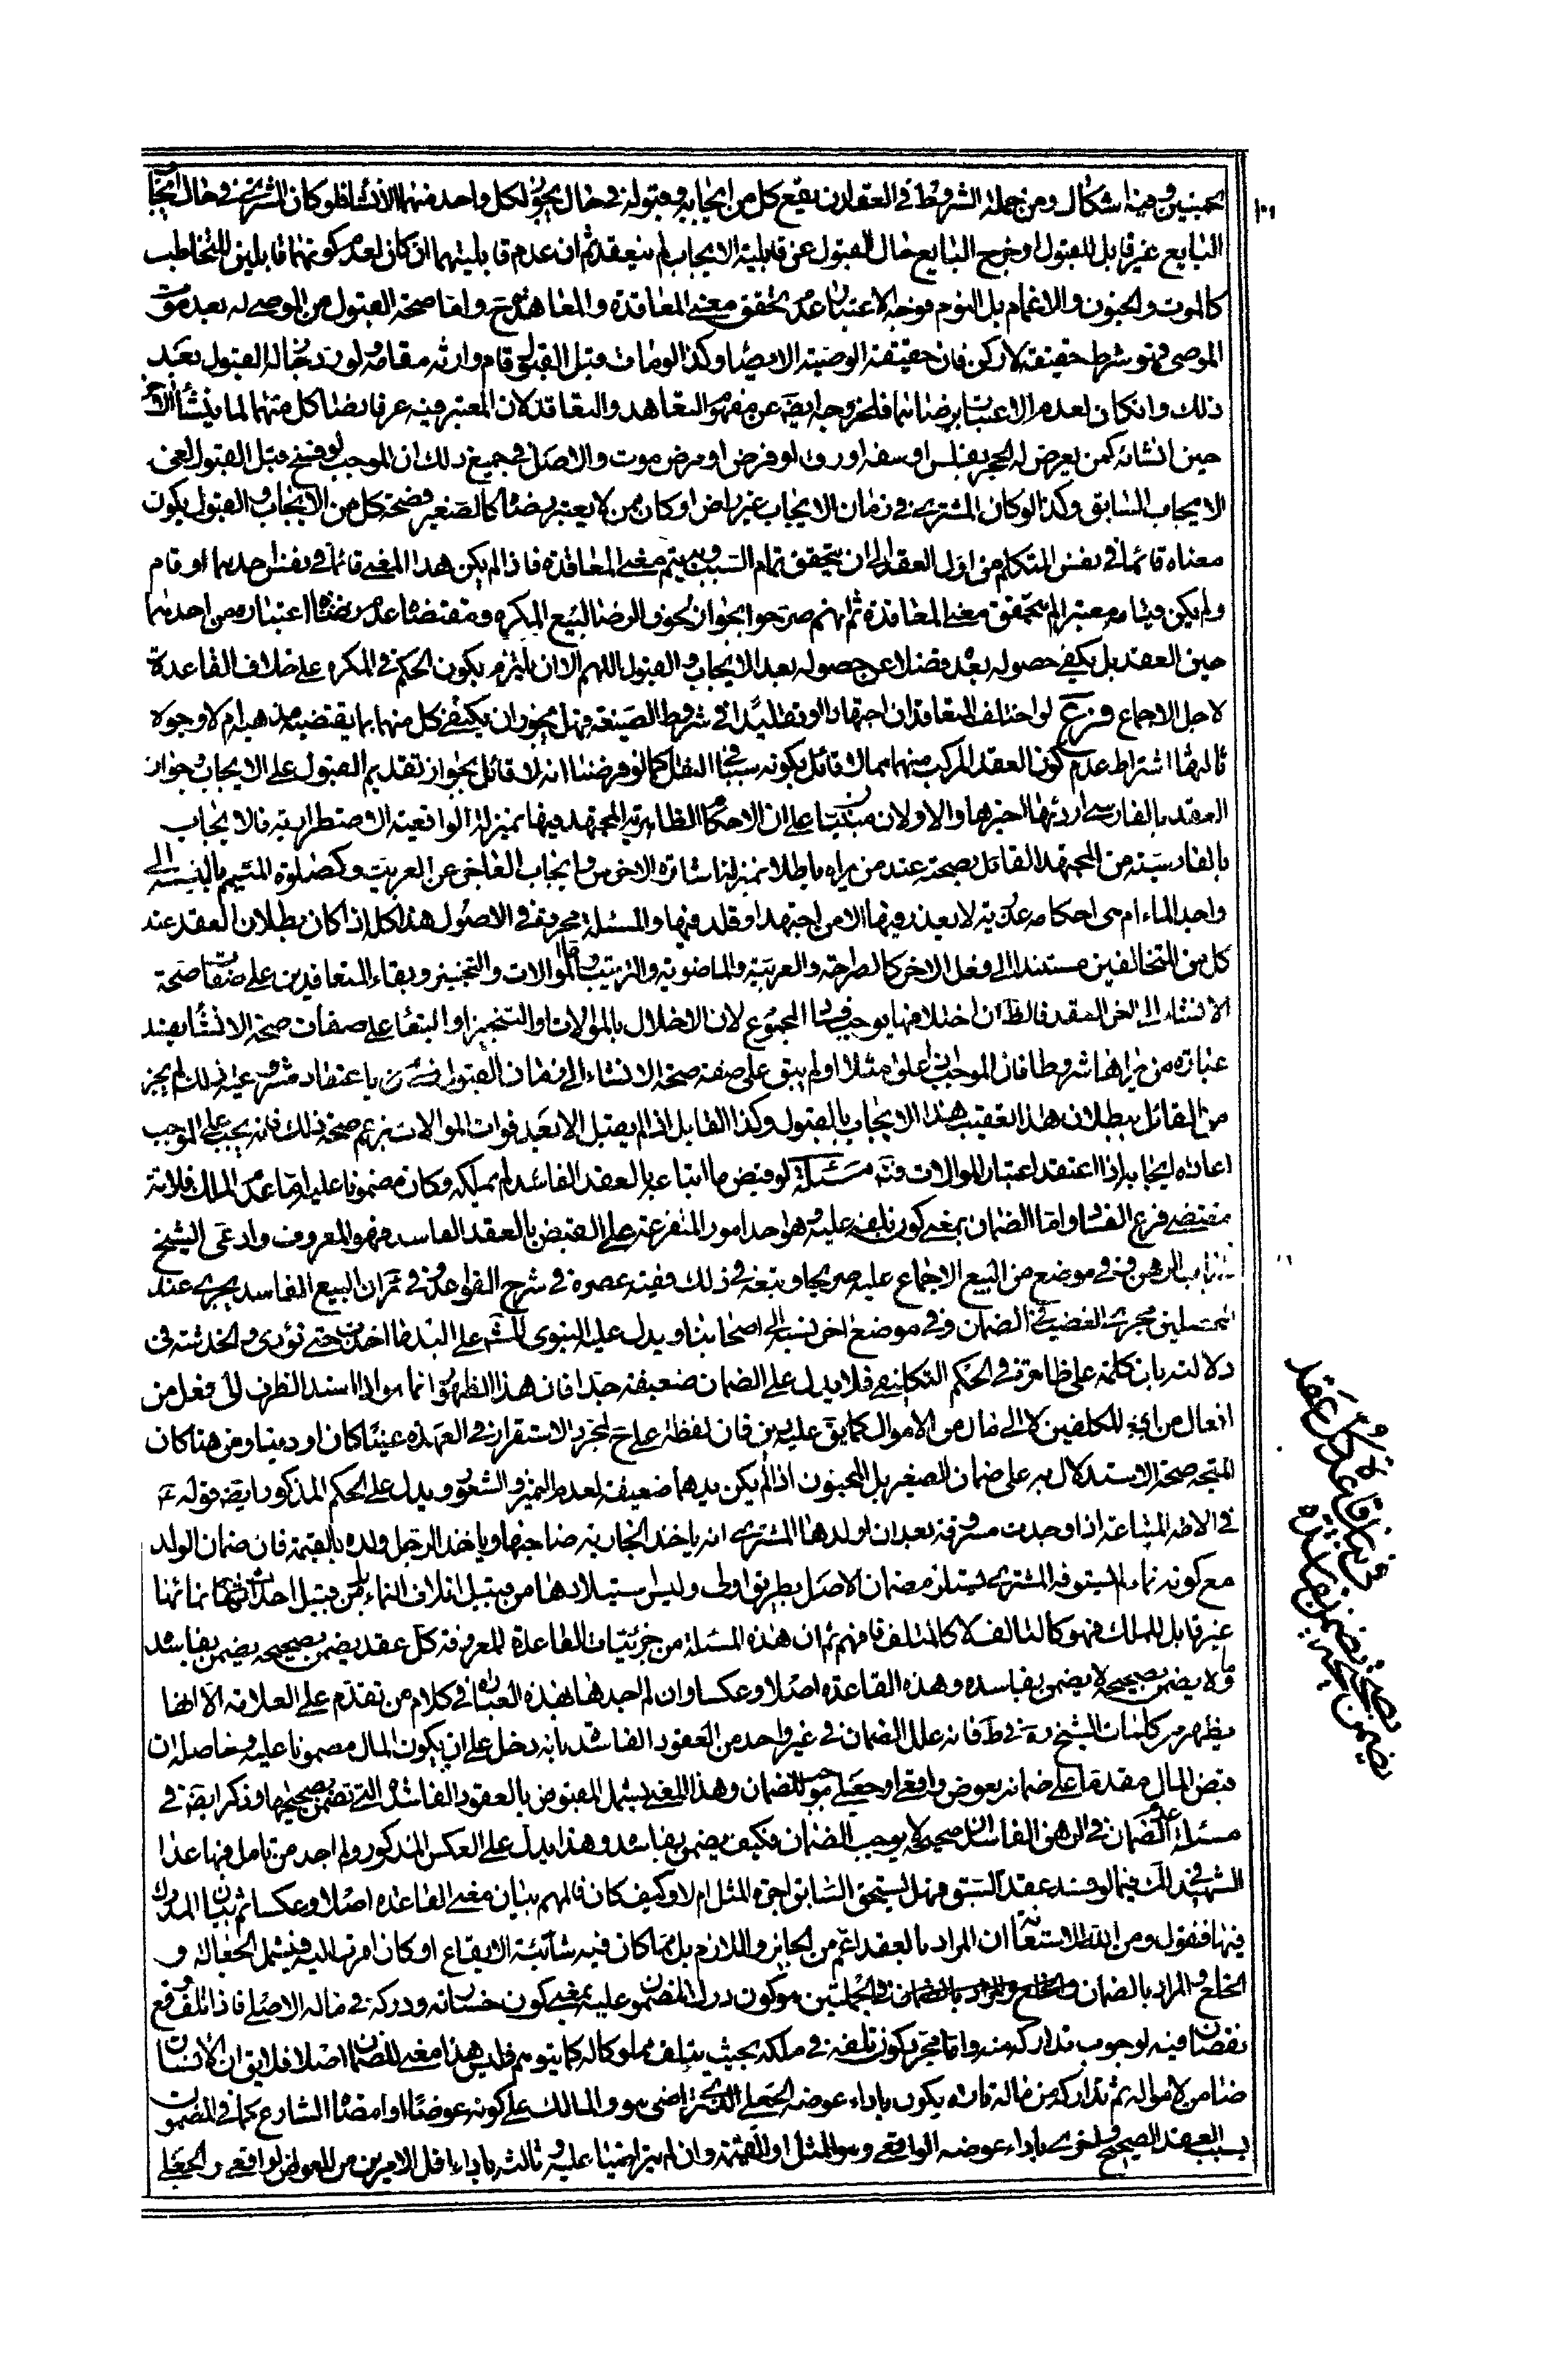 ١٠١
الجنسين وفيه اشكال ومن جملة الشروط في العقد ان يقع كل من ايجابه وقبوله في حال يجوز لكل واحد منهما الانشاء فلو كان المشتري في حال ايجاب
البايع غير قابل للقبول او خرج البايع حال القبول عن قابلية الايجاب لم ينعقد ثم ان عدم قابليتهما ان كان لعدم كونهما قابلين للتخاطب
كالموت والجنون والاغماء بل النوم فوجه الاعتبار عدم تحقق معنى المعاقدة والمعاهدة ح واما صحة القبول من الموصى له بعد موت
الموصى فهو شرط حقيقة لا ركن فان حقيقة الوصية الايصاء وكذا لو مات قبل القبول قام وارثه مقامه ولو رد جاز له القبول بعد
ذلك وان كان لعدم الاعتبار برضائهما فلخروجه ايضا عن مفهوم التعاهد والتعاقد لان المعتبر فيه عرفا رضا كل منهما لما ينشأه الاخر
حين انشائه كمن يعرض له الحجر بفلس او سفه او رق لو فرض او مرض موت والاصل في جميع ذلك ان الموجب لو فسخ قبل القبول لغى
الايجاب السابق وكذا لو كان المشتري في زمان الايجاب غير راض او كان ممن لا يعتبر رضاه كالصغير فصحة كل من الايجاب والقبول يكون
معناه قائما في نفس المتكلم من اول العقد الى ان يتحقق تمام السبب وبه يتم معنى المعاقدة فاذا لم يكن هذا المعنى قائما في نفس احدهما او قام
ولم يكن قيامه معتبرا لم يتحقق معنى المعاقدة ثم انهم صرحوا بجواز لحوق الرضا لبيع المكره ومقتضاه عدم اعتباره من احدهما
حين العقد بل يكفي حصوله بعده فضلا عن حصوله بعد الايجاب وقبل القبول اللهم الا ان يلتزم بكون الحكم في المكره على خلاف القاعدة
لاجل الاجماع فرع لو اختلف المتعاقدان اجتهادا او تقليدا في شروط الصيغة فهل يجوز ان يكتفي كل منهما بما يقتضيه مذهبه ام لا وجوه
ثالثها اشتراط عدم كون العقد المركب منهما مما لا قائل بكونه سببا في النقل كما لو فرضنا انه لا قائل بجواز تقديم القبول على الايجاب وجواز
العقد بالفارسي اردئها اخيرها والاولان مبنيان على ان الاحكام الظاهرية المجتهد فيها بمنزلة الواقعية الاضطرارية فالايجاب
بالفارسية من المجتهد القائل بصحته عند من يراه باطلا بمنزلة اشارة الاخرس وايجاب العاجز عن العربية وكصلوة المتيمم بالنسبة الى
واجد الماء ام هي احكام عذرية لا يعذر فيها الا من اجتهد او قلد فيها والمسئلة محررة في الاصول هذا كله اذا كان بطلان العقد عند
كل من المتخالفين مستندا الى فعل الاخر كالصراحة والعربية والماضوية والترتيب واما الموالات والتنجيز وبقاء المتعاقدين على صفات صحة
الانشاء الى اخر العقد فالظ ان اختلافها يوجب فساد المجموع لان الاخلال بالموالات او التنجيز او البقاء على صفات صحة الانشاء يفسد
عبارة من يراها شروطا فان الموجب اذا علق مثلا او لم يبق على صفة صحة الانشاء الى زمان القبول باعتقاد مشروعية ذلك لم يجز
من القائل ببطلان هذا تعقيب هذا الايجاب بالقبول وكذا القابل اذا لم يقبل الا بعد فوات الموالات بزعم صحة ذلك فانه يجب على الموجب
اعادة ايجابه اذا اعتقد اعتبار الموالات فتم مسئلة لو قبض ما ابتاعه بالعقد الفاسد لم يملكه وكان مضمونا عليه اما عدم الملك فلانه
مقتضى فرع الفساد واما الضمان بمعنى كون تلفه عليه وهو احد امور المتفرعة على القبض بالعقد الفاسد فهو المعروف وادعى الشيخ
في باب الرهن وفي موضع من البيع الاجماع عليه صريحا وتبعه في ذلك فقيه عصره في شرح القواعد وفي ئر ان البيع الفاسد يجري عند
المحصلين مجرى الغصب في الضمان وفي موضع اخر نسبه الى اصحابنا ويدل عليه النبوي المش على اليد ما اخذت حتى تؤدي والخدشة في
دلالته بان كلمة على ظاهرة في الحكم التكليفي فلا يدل على الضمان ضعيفة جدا فان هذا الظهور انما هو اذا اسند الظرف الى فعل من
افعال المكلفين لا الى مال من الاموال كما يق عليه دين فان لفظة على ح لمجرد الاستقرار في العهدة عينا كان او دينا ومن هنا كان
المتجه صحة الاستدلال به على ضمان الصغير بل المجنون اذا لم يكن يدهما ضعيفة لعدم التميز والشعور ويدل على الحكم المذكور ايضا قوله ع
في الامة المبتاعة اذا وجدت مسروقة بعد ان اولدها المشتري انه ياخذ الجارية صاحبها وياخذ الرجل ولده بالقيمة فان ضمان الولد
مع كونه نماء لم يستوفه المشتري يستلزم ضمان الاصل بطريق اولى وليس استيلادها من قبيل اتلاف النماء بل من قبيل احداث نمائها
غير قابل للملك فهو كالتالف لا كالمتلف فافهم ثم ان هذه المسئلة من جزئيات القاعدة المعروفة كل عقد يضمن بصحيحه يضمن بفاسده
وما لا يضمن بصحيحه لا يضمن بفاسده وهذه القاعدة اصلا وعكسا وان لم اجدها بهذه العبارة في كلام من تقدم على العلامة الا انها
يظهر من كلمات الشيخ ره في ط فانه علل الضمان في غير واحد من العقود الفاسدة بانه دخل على ان يكون المال مضمونا عليه وحاصله ان
قبض المال مقدما على ضمانه بعوض واقعي او جعلي موجب للضمان وهذا المعنى يشمل المقبوض بالعقود الفاسدة التي تضمن بصحيحها وذكر ايضا في
مسئلة عدم الضمان في الرهن الفاسد ان صحيحه لا يوجب الضمان فكيف يضمن بفاسده وهذا يدل على العكس المذكور ولم اجد من تامل فيها عدا
الشهيد في لك فيما لو فسد عقد السبق فهل يستحق السابق اجرة المثل ام لا وكيف كان فالمهم بيان معنى القاعدة اصلا وعكسا ثم بيان المدرك
فيها فنقول ومن الله الاستعانة ان المراد بالعقد اعم من الجائز واللازم بل مما كان فيه شائبة الايقاع او كان اقرب اليه فيشمل الجعالة و
الخلع والمراد بالضمان في الجملتين هو كون درك المضمون عليه بمعنى كون خسارته ودركه في ماله الاصلي فاذا تلف وقع
نقصان فيه لوجوب تداركه منه واما مجرد كون تلفه في ملكه بحيث يتلف مملوكا له كما يتوهم فليس هذا معنى للضمان اصلا فلا يق ان الانسان
ضامن لاموله ثم تداركه من ماله تارة يكون باداء عوضه الجعلي الذي تراضى هو والمالك على كونه عوضا وامضاه الشارع كما في المضمون
بسبب العقد الصحيح واخرى باداء عوضه الواقعي وهو المثل او القيمة وان لم يتراضيا عليه وثالثة باداء اقل الامرين من العوض الواقعي والجعلي
في بيان قاعدة كل عقد
يضمن بصحيحه يضمن بفاسده